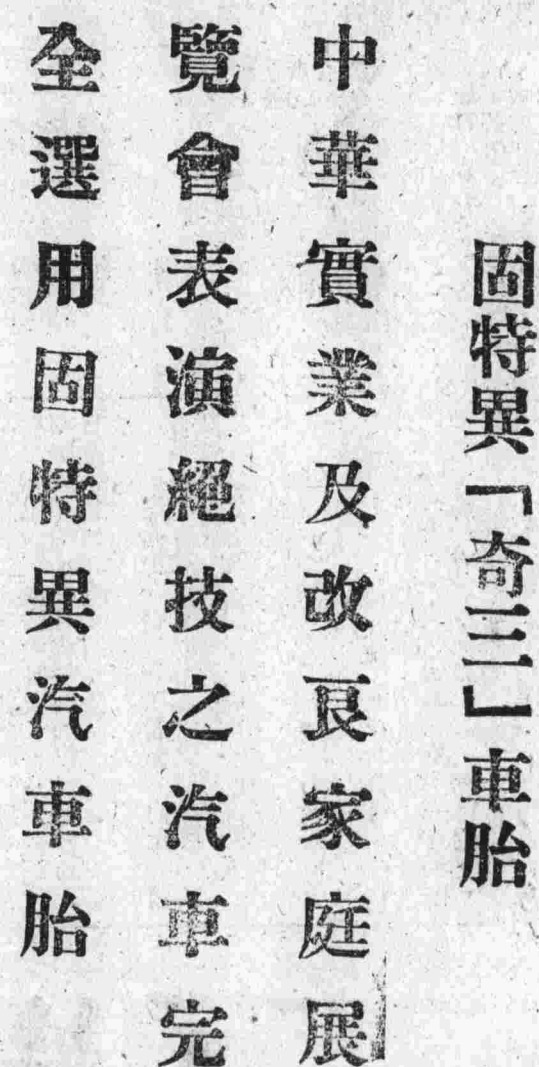 固特異「奇三」車胎
中華實業及改良家庭展
覽會表演繩技之汽車完
全選用固特異汽車胎